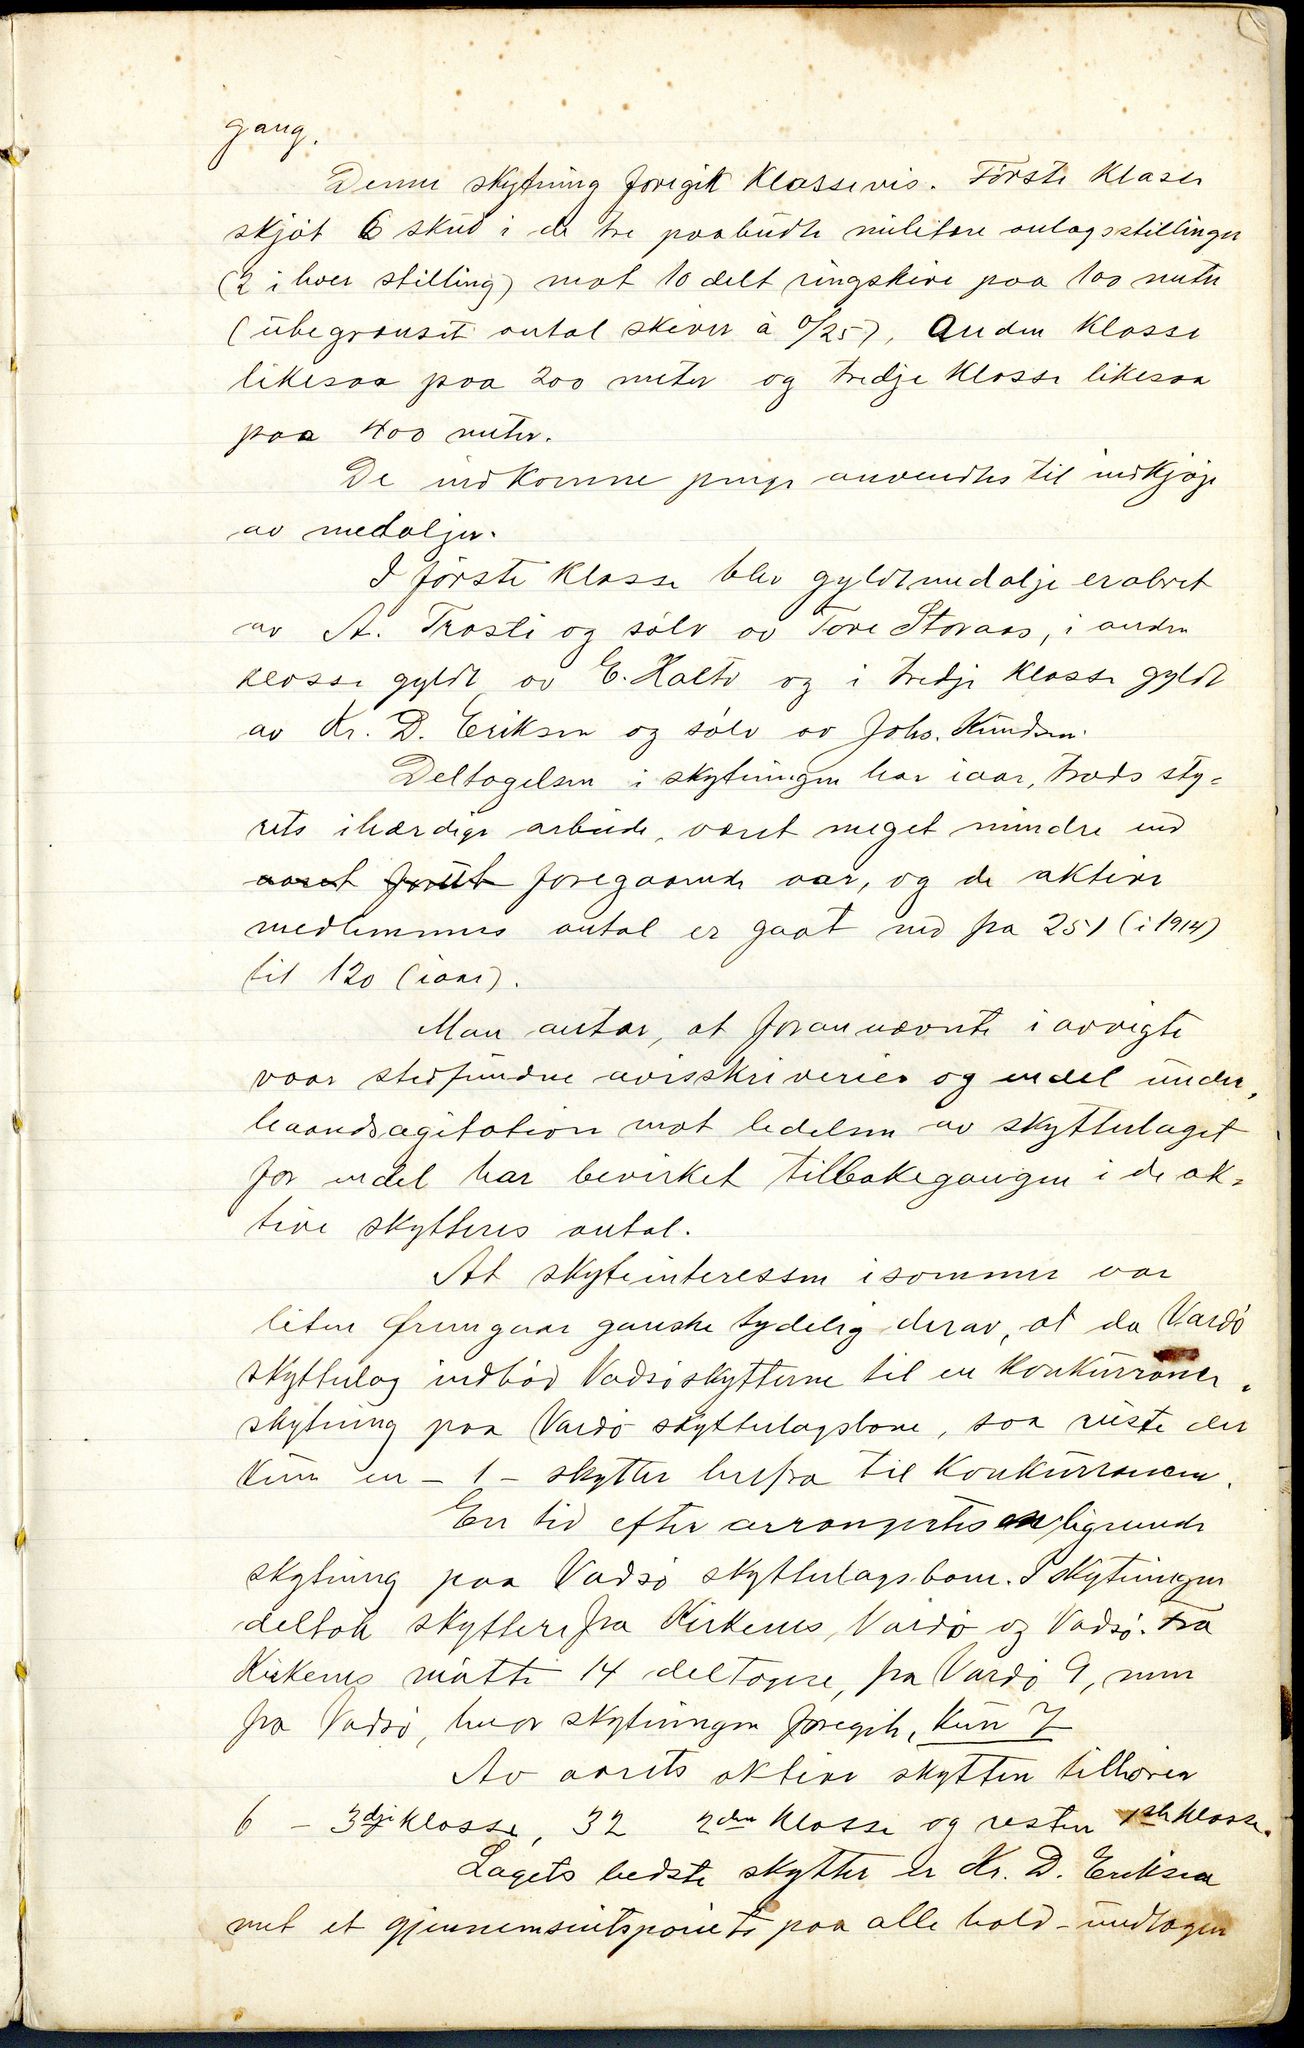 gang.
Denne skytning foregik klassevis. Förste klasse
skjøt 6 skud i de tre paabudte militære anlagsstillinger
(2 i hver stilling) mot 10 delt ringskive paa 100 meter
(ubegrænset antal skiver à 0/25), Anden klasse
likesaa paa 200 meter og tredje klasse likesaa
paa 400 meter.
De indkomne penge anvendtes til indkjøp
av medaljer.
I første klasse blev gyldtmedalje erobret
av A. Trasti og sølv av Tore Storaas, i anden
klasse gyldt av E. Halto og i tredje klasse gyldt
av Kr. D. Eriksen og sølv av Johs. Knudsen.
Deltagelsen i skytningen har iaar, trods sty-
rets ihærdige arbeide, været meget mindre end
aaret forut foregaaende aar, og de aktive
medlemmers antal er gaat ned fra 251 (i 1914)
til 120 (iaar).
Man antar, at forannævnte i avvigte
vaar stedfundne avisskriverier og endel under-
haandsagitation mot ledelsen av skytterlaget
for endel har bevirket tilbakegangen i de ak-
tive skytteres antal.
At skyteinteressen isommer var
liten fremgaar ganske tydelig derav, at da Vardø
skytterlag indbød Vadsøskytterne til en konkurrance-
skytning paa Vardø skytterlagsbane, saa reiste der
kun en - 1 - skytter herfra til konkurrancen.
En tid efter arrangertes en lignende
skytning paa Vadsø skytterlagsbane. I skytningen
deltok skyttere fra Kirkenes, Vardø og Vadsø. Fra
Kirkenes møtte 14 deltagere, fra Vardø 9, men
fra Vadsø, hvor skytningen foregik, kun 7
Av aarets aktive skyttere tilhører
6 - 3dje klasse, 32 2den klasse og resten 1ste klasse.
Lagets bedste skytter er Kr. D. Eriksen
met et gjennemsnitspoints paa alle hold - undtagen